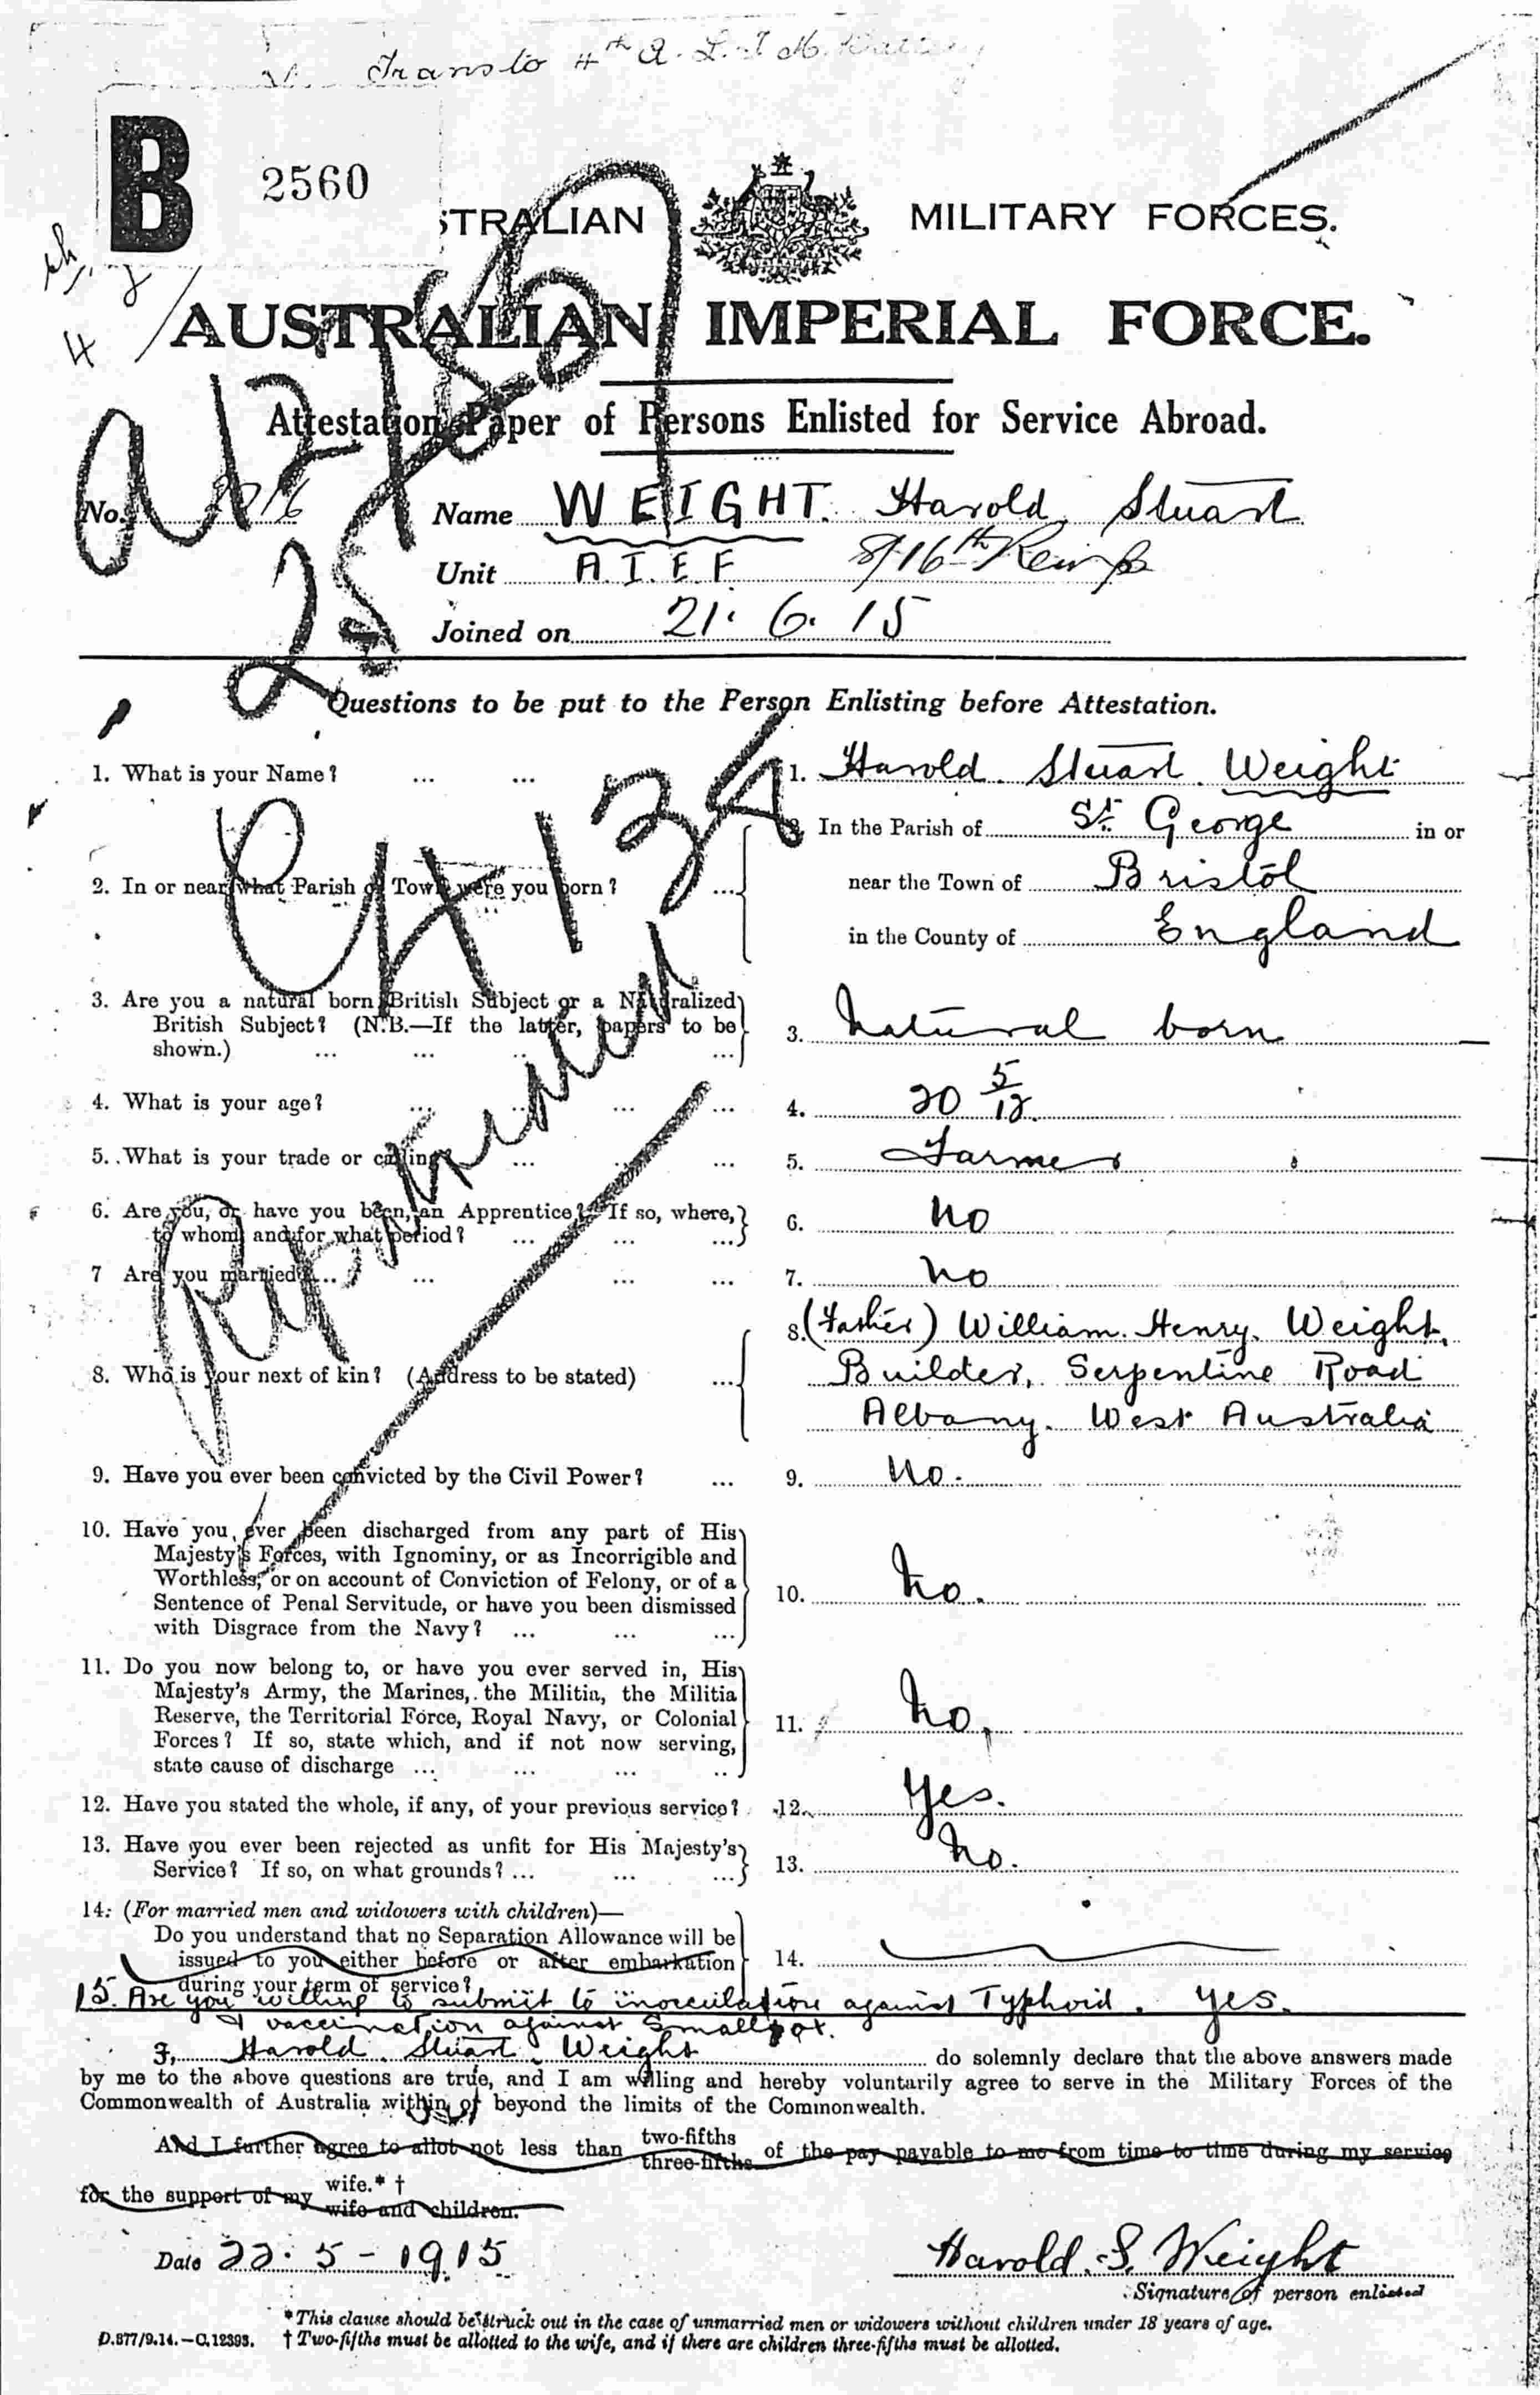 Trans to 4th A. L. T. M. Battery
B 2560
STRALIAN MILITARY FORCES.
AUSTRALIAN IMPERIAL FORCE.
Attestation Paper of Persons Enlisted for Service Abroad.
No. Name WEIGHT. Harold Stuart
Unit A.I.E.F. 8/16th Reinfs
Joined on 21. 6. 15
Questions to be put to the Person Enlisting before Attestation.
1. What is your Name? ... ... 1. Harold Stuart Weight
2. In or near what Parish or Town were you born? ... 2. In the Parish of St. George in or
near the Town of Bristol
in the County of England
3. Are you a natural born British Subject or a Naturalized
British Subject? (N.B.—If the latter, papers to be
shown.) ... ... ... ... 3. Natural born
4. What is your age? ... ... ... ... 4. 20 5/12
5. What is your trade or calling? ... ... ... 5. Farmer
6. Are you, or have you been, an Apprentice? If so, where,
to whom, and for what period? ... ... ... 6. No
7 Are you married? ... ... ... ... 7. No
8. Who is your next of kin? (Address to be stated) ... 8. (Father) William Henry Weight,
Builder, Serpentine Road
Albany. West Australia
9. Have you ever been convicted by the Civil Power? ... 9. No.
10. Have you ever been discharged from any part of His
Majesty's Forces, with Ignominy, or as Incorrigible and
Worthless, or on account of Conviction of Felony, or of a
Sentence of Penal Servitude, or have you been dismissed
with Disgrace from the Navy? ... ... ... 10. No.
11. Do you now belong to, or have you ever served in, His
Majesty's Army, the Marines, the Militia, the Militia
Reserve, the Territorial Force, Royal Navy, or Colonial
Forces? If so, state which, and if not now serving,
state cause of discharge ... ... ... .. 11. No,
12. Have you stated the whole, if any, of your previous service? 12. Yes.
13. Have you ever been rejected as unfit for His Majesty's
Service? If so, on what grounds? ... ... ... 13. No.
14. (For married men and widowers with children)—
Do you understand that no Separation Allowance will be
issued to you either before or after embarkation
during your term of service? 14.
15. Are you willing to submit to inoculation against Typhoid. Yes.
& vaccination against Smallpox.
I, Harold Stuart Weight do solemnly declare that the above answers made
by me to the above questions are true, and I am willing and hereby voluntarily agree to serve in the Military Forces of the
Commonwealth of Australia within or beyond the limits of the Commonwealth.
And I further agree to allot not less than two-fifths three-fifths of the pay payable to me from time to time during my service
for the support of my wife.* † wife and children.
Date 22. 5 - 1915 Harold. S. Weight
Signature of person enlisted
*This clause should be struck out in the case of unmarried men or widowers without children under 18 years of age.
D.877/9.14.—C.12393. † Two-fifths must be allotted to the wife, and if there are children three-fifths must be allotted.